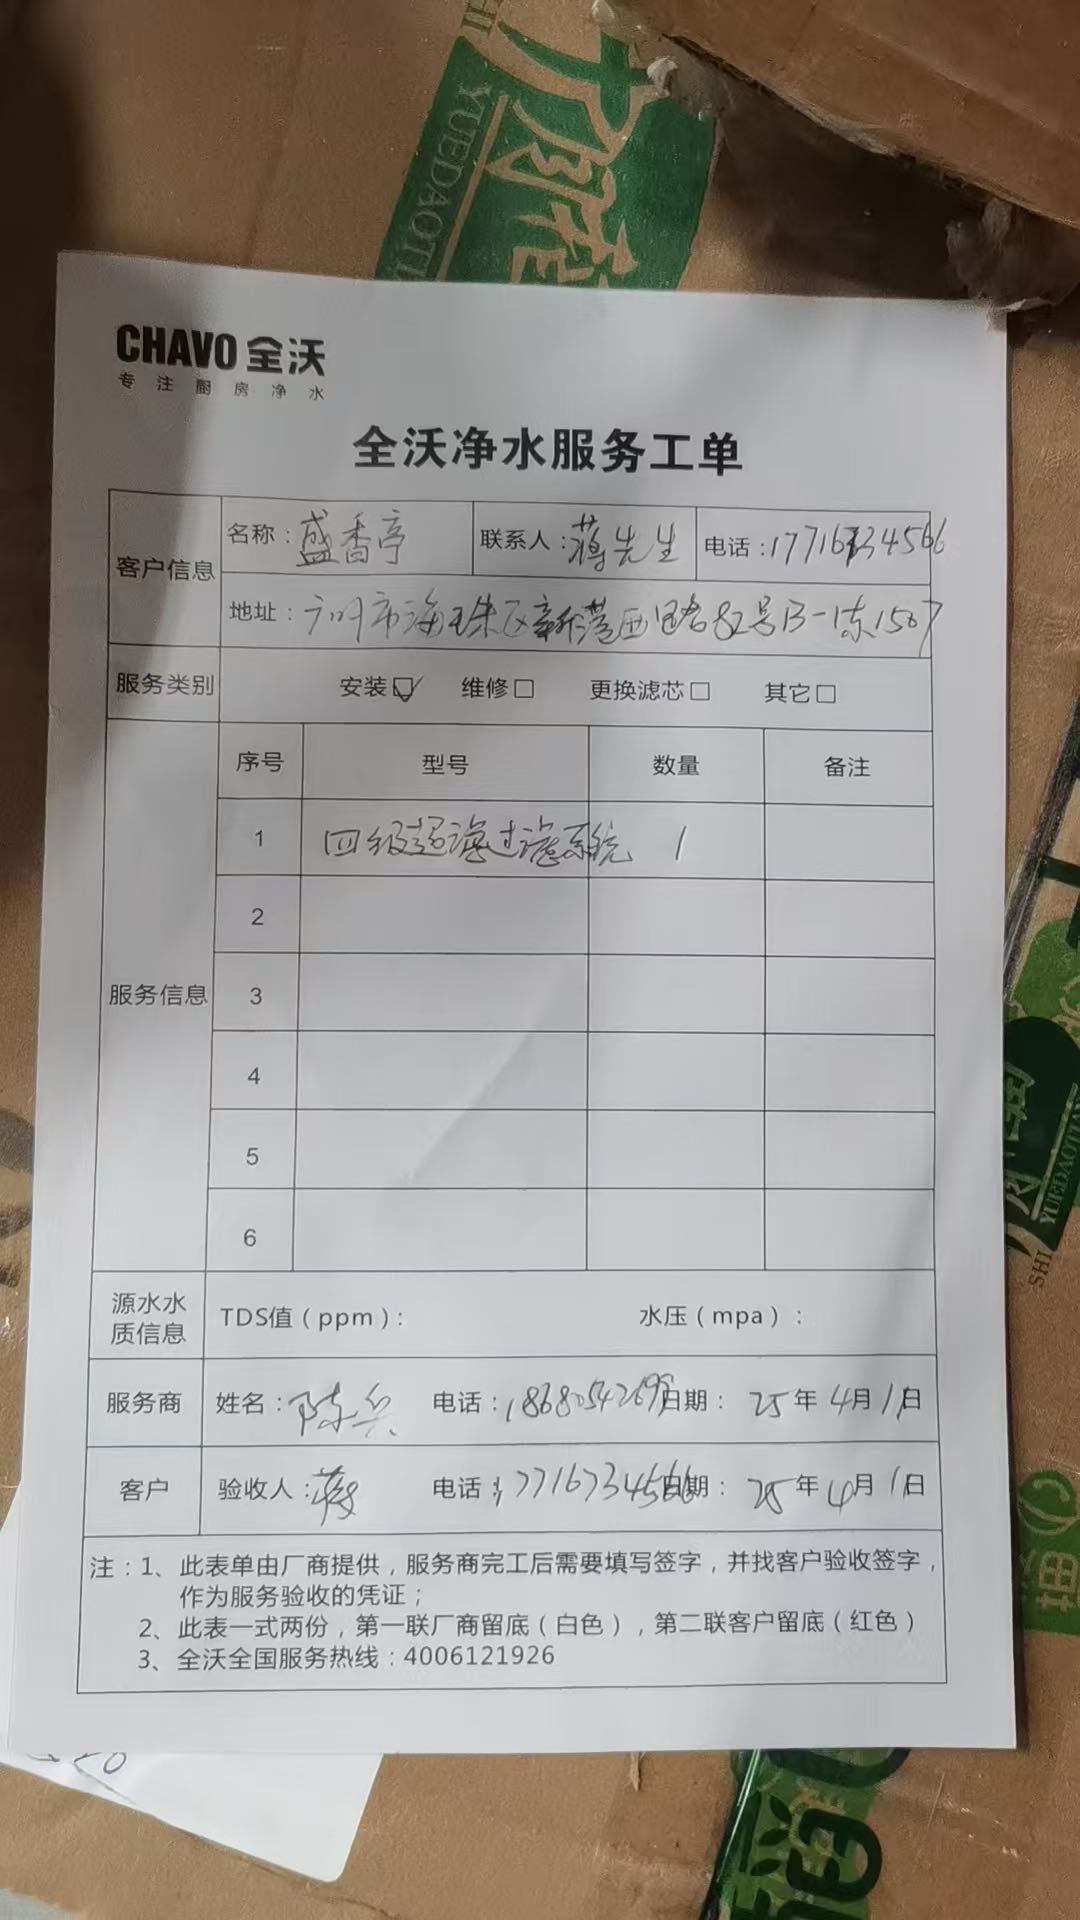 YUEDAOTI
CHAVO 全沃
专注厨房净水
全沃净水服务工单
客户信息 名称：盛香亭 联系人：蒋先生 电话：17716734566
地址：广州市海珠区新港西路82号B一栋1507
服务类别 安装☑ 维修□ 更换滤芯□ 其它□
服务信息 序号 型号 数量 备注
1 四级超滤过滤系统 1
2
3
4
5
6
源水水质信息 TDS值（ppm）： 水压（mpa）：
服务商 姓名：陈兵 电话：18680542699 日期：25年4月1日
客户 验收人：蒋 电话：17716734566 日期：25年4月1日
注：1、此表单由厂商提供，服务商完工后需要填写签字，并找客户验收签字，
作为服务验收的凭证；
2、此表一式两份，第一联厂商留底（白色），第二联客户留底（红色）
3、全沃全国服务热线：4006121926
YUEDAOTIAN
SHI